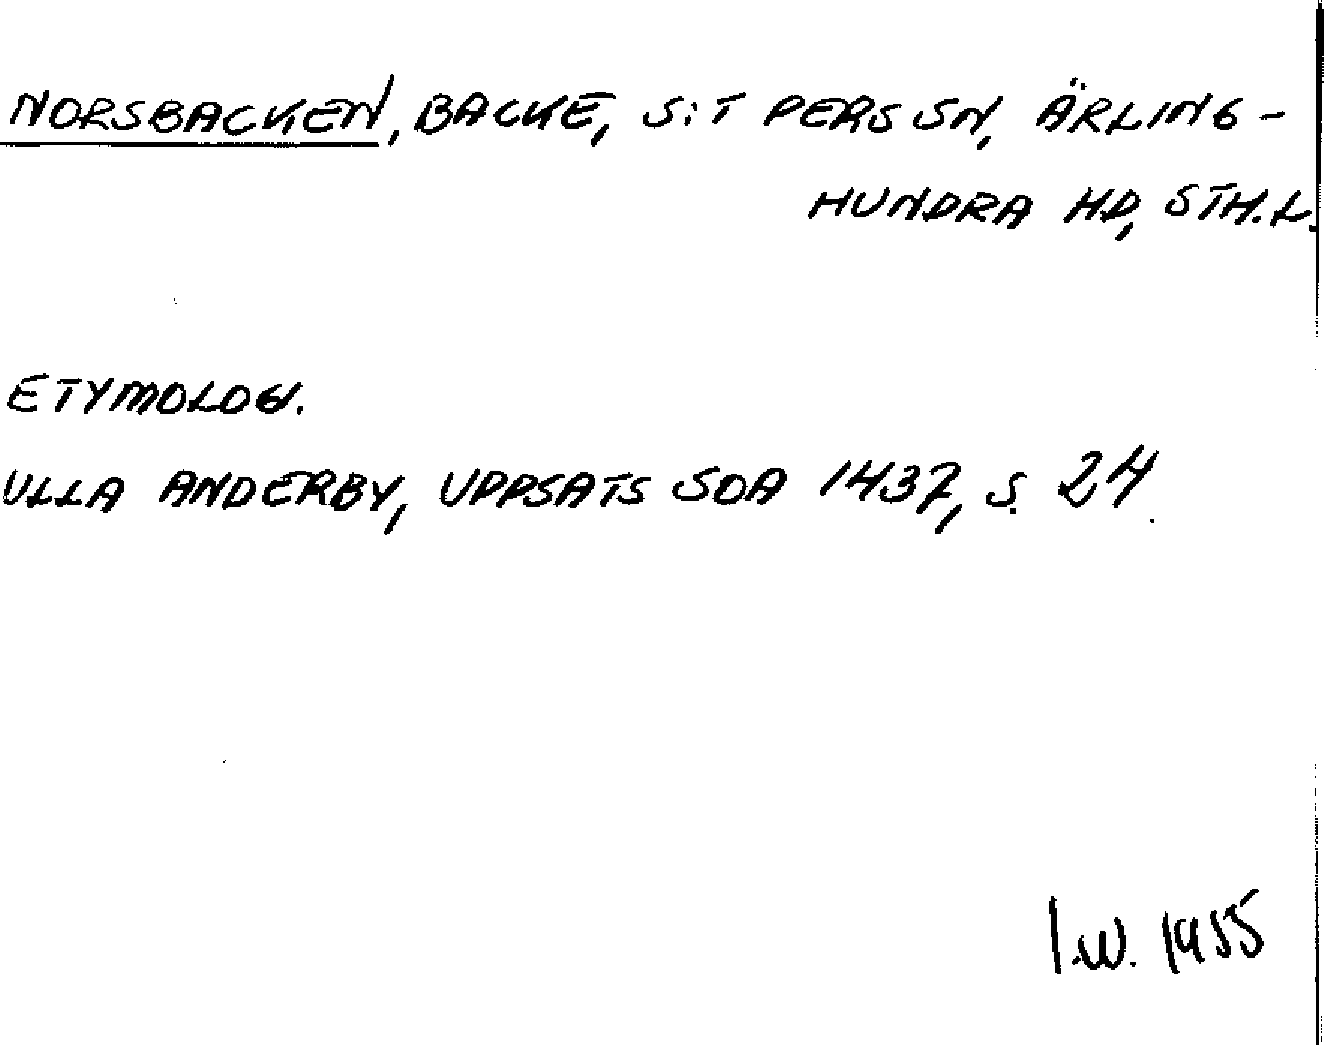 NORSBACKEN, BACKE, S:T PERS SN, ÄRLING-
HUNDRA HD, STH.L.
ETYMOLOGI.
ULLA ANDERBY, UPPSATS SOA 1437, S. 24.
I.W. 1955